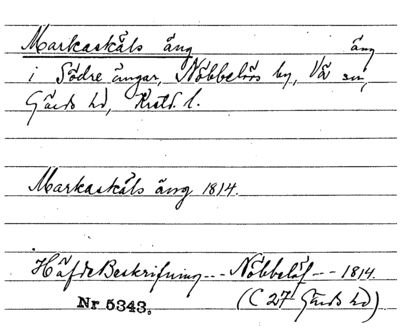 Markaskåls äng äng
i Södre ängar, Nöbbelövs by, Vä sn,
Gärds hd, Krsts l.
Markaskåls äng 1814.
HäfdeBeskrifning -- Nöbbelöf -- 1814.
Nr 5343. (C 27 Gärds hd)